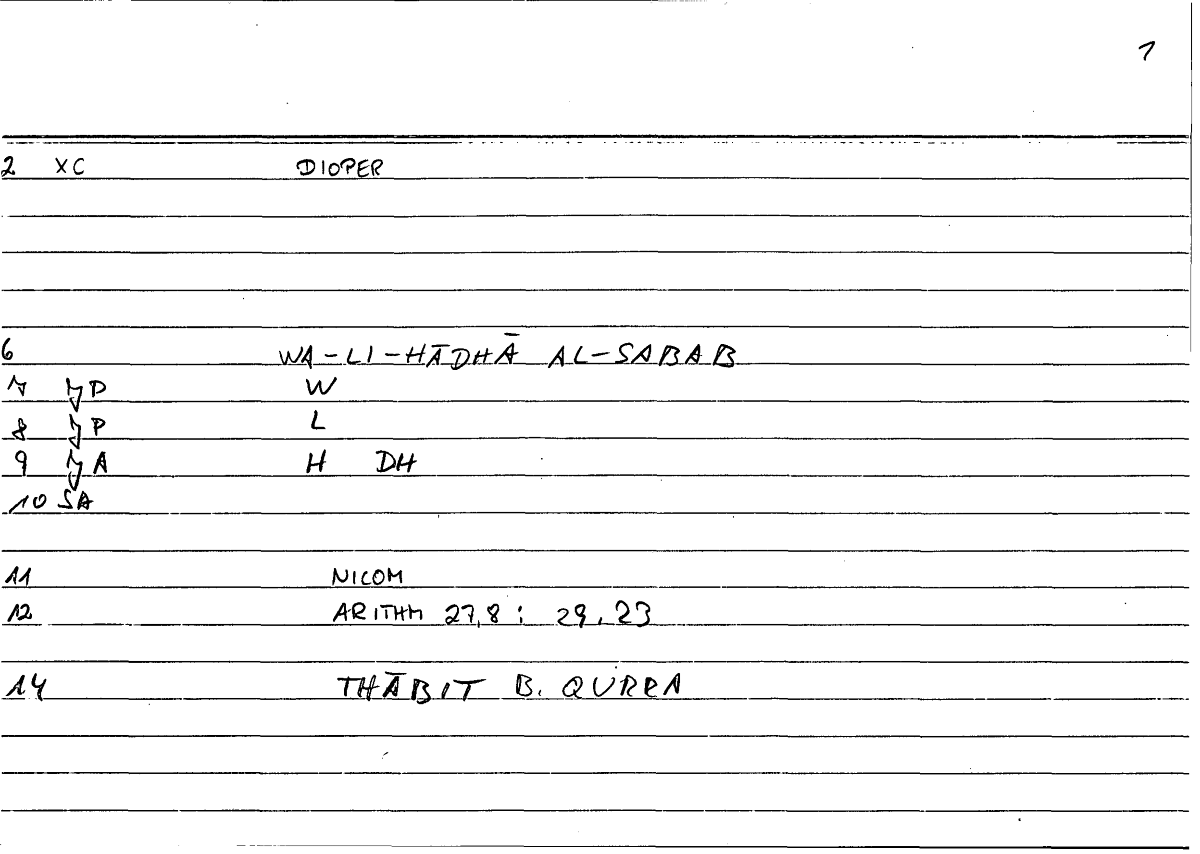 1
2 XC DIOPER
6 WA-LI-HĀDHĀ AL-SABAB
7 D W
8 P L
9 A H DH
10 SA
11 NICOM
12 ARITHM 27,8 : 29,23
14 THĀBIT B. QURRA